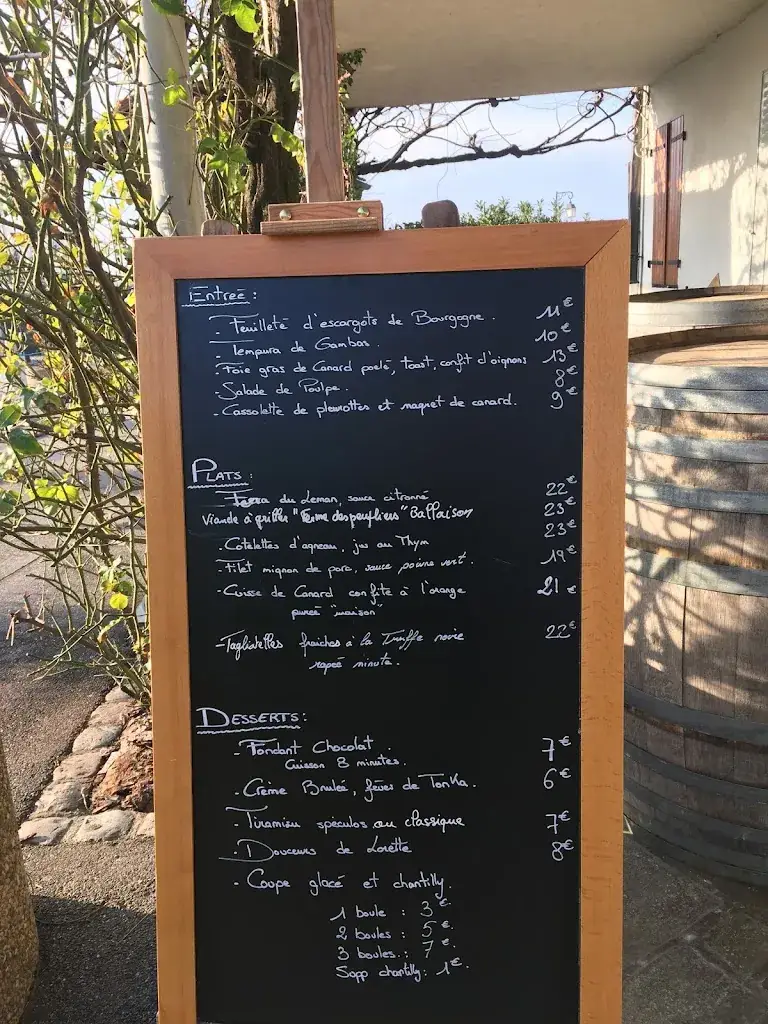 Entreé :
- Feuilleté d'escargots de Bourgogne. 11€
- Tempura de Gambas. 10€
- Foie gras de Canard poelé, toast, confit d'oignons 13€
- Salade de Poulpe. 8€
- Cassolette de pleurottes et magret de canard. 9€
PLATS :
- Fera du Leman, sauce citronné 22€
Viande à griller "Ferme des peupliers" Ballaison 23€
- Cotelettes d'agneau, jus au Thym 23€
- Filet mignon de porc, sauce poivre vert. 19€
- Cuisse de Canard confite à l'orange 21€
pureé "maison"
- Tagliatelles fraiches à la Truffe noire 22€
rapeé minute.
DESSERTS :
- Fondant Chocolat 7€
Cuisson 8 minutes.
- Crème Bruleé, fèves de Tonka. 6€
- Tiramisu spéculos ou classique 7€
- Douceurs de Lorette 8€
- Coupe glacé et chantilly.
1 boule : 3€.
2 boules : 5€.
3 boules : 7€.
Supp chantilly : 1€.